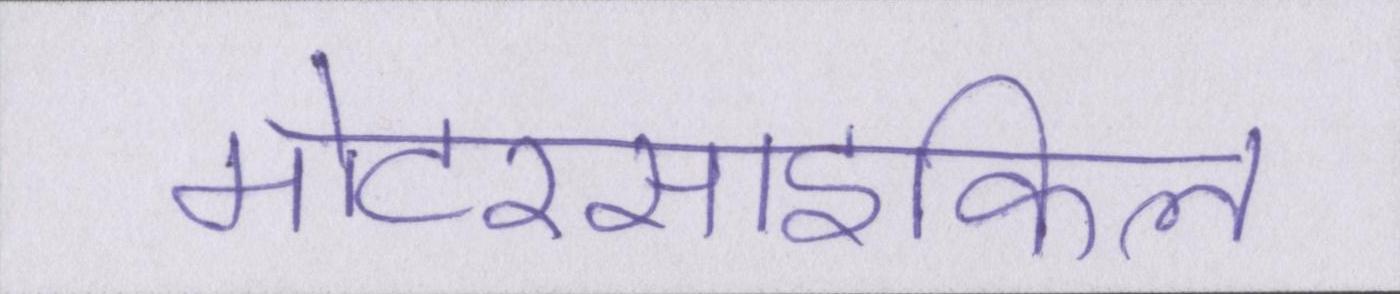 मोटरसाइकिल